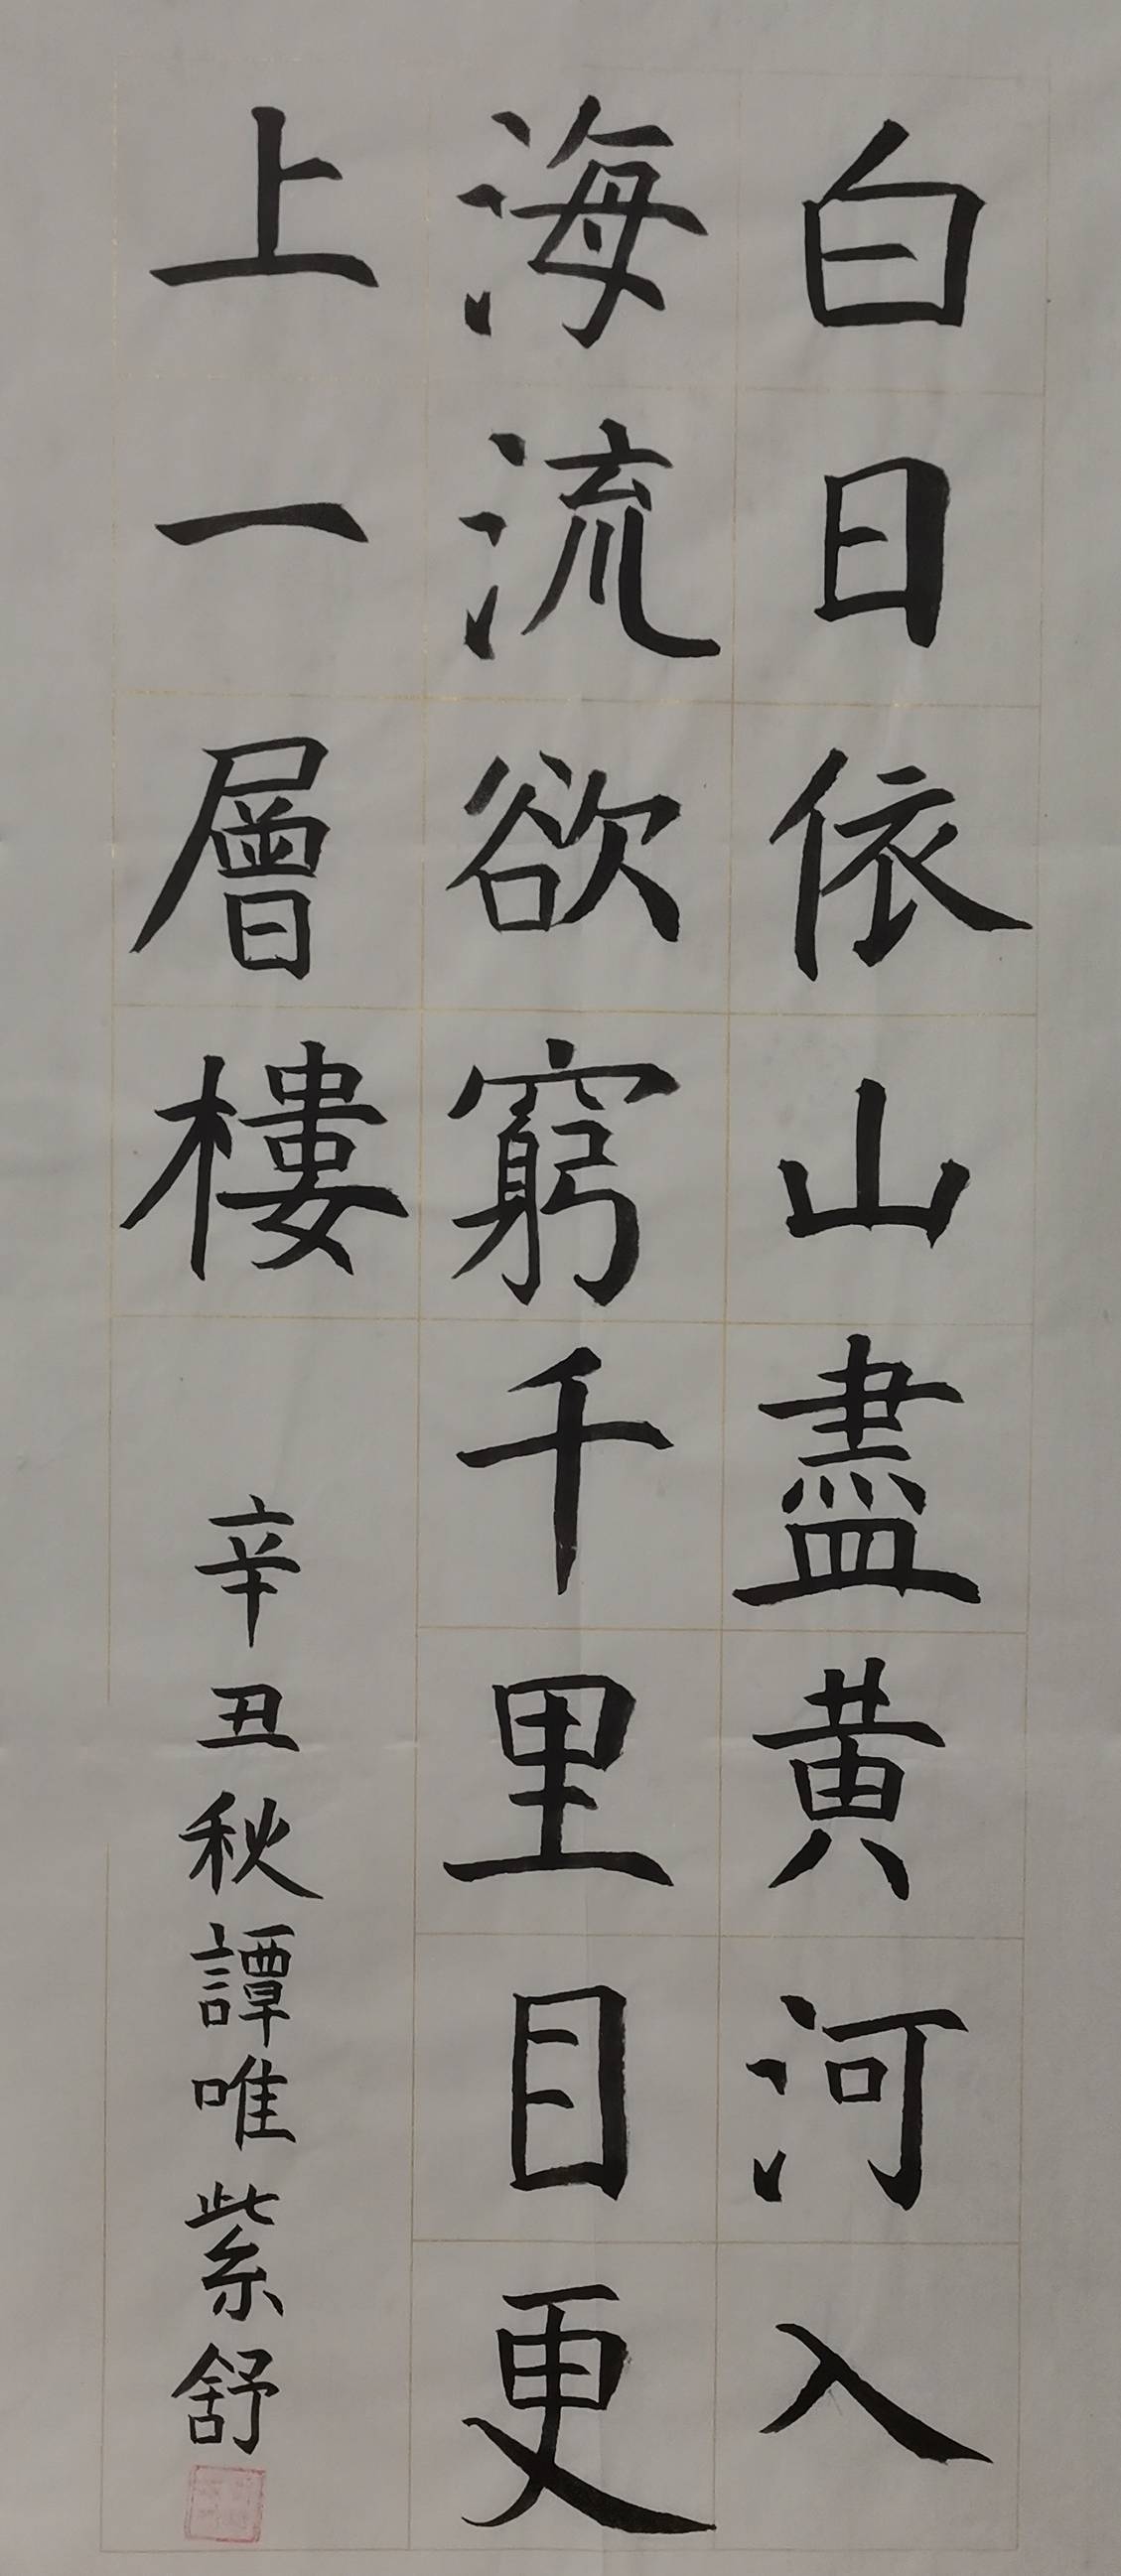 白日依山盡黄河入
海流欲窮千里目更
上一層樓
辛丑秋譚唯紫舒